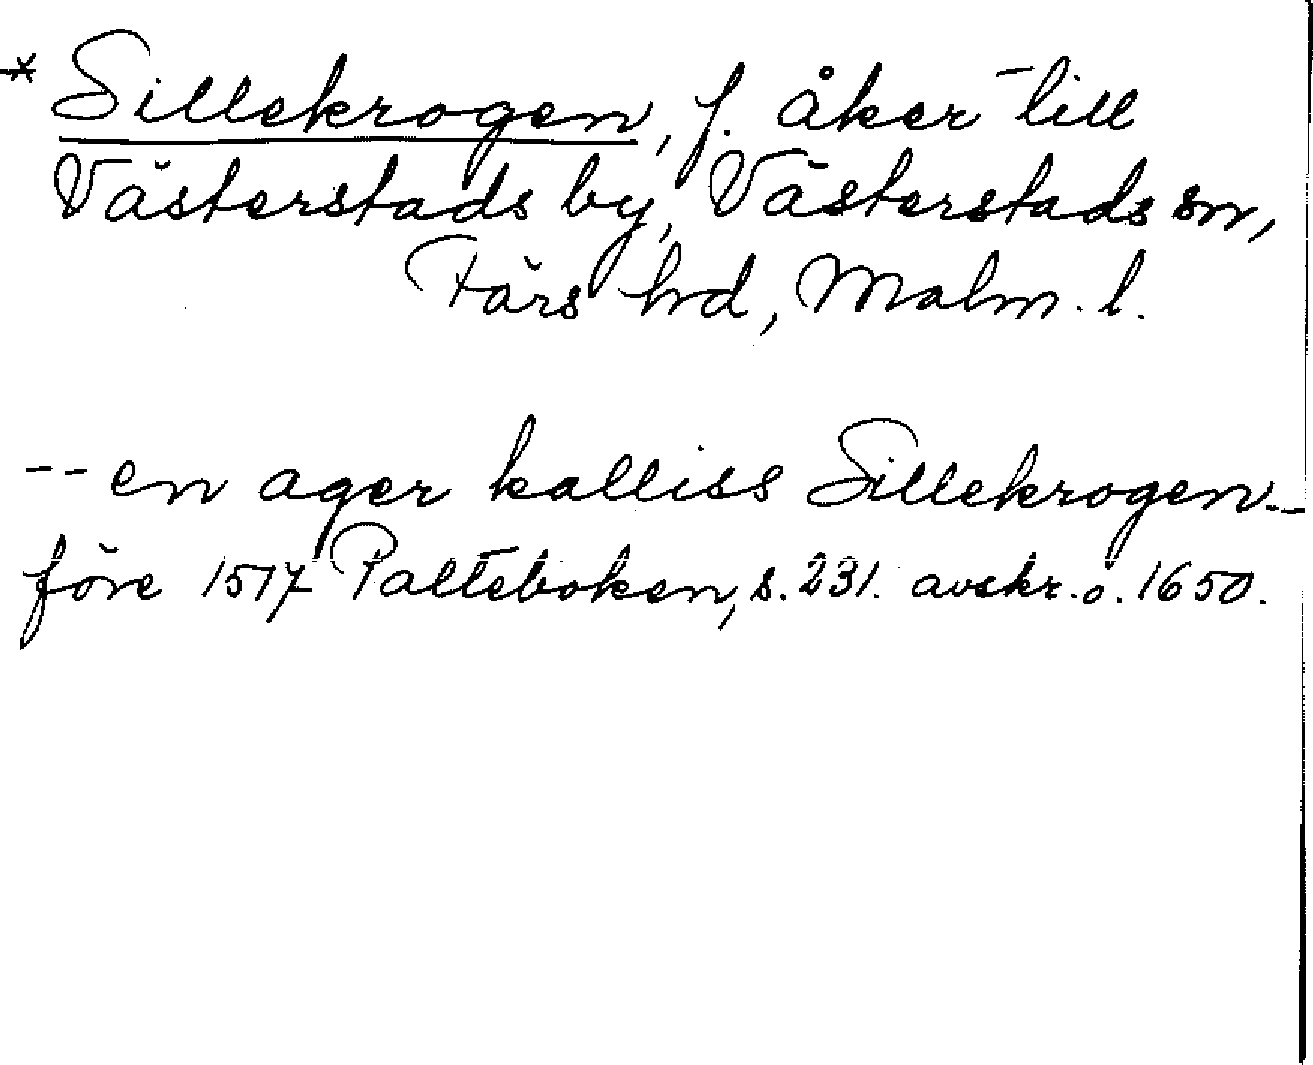 * Sillekrogen, f. åker till
Västerstads by, Västerstads sn,
Färs hd, Malm. l.
-- en ager kalliss Sillekrogen --
före 1517 Palteboken, s. 231. avskr. o. 1650.